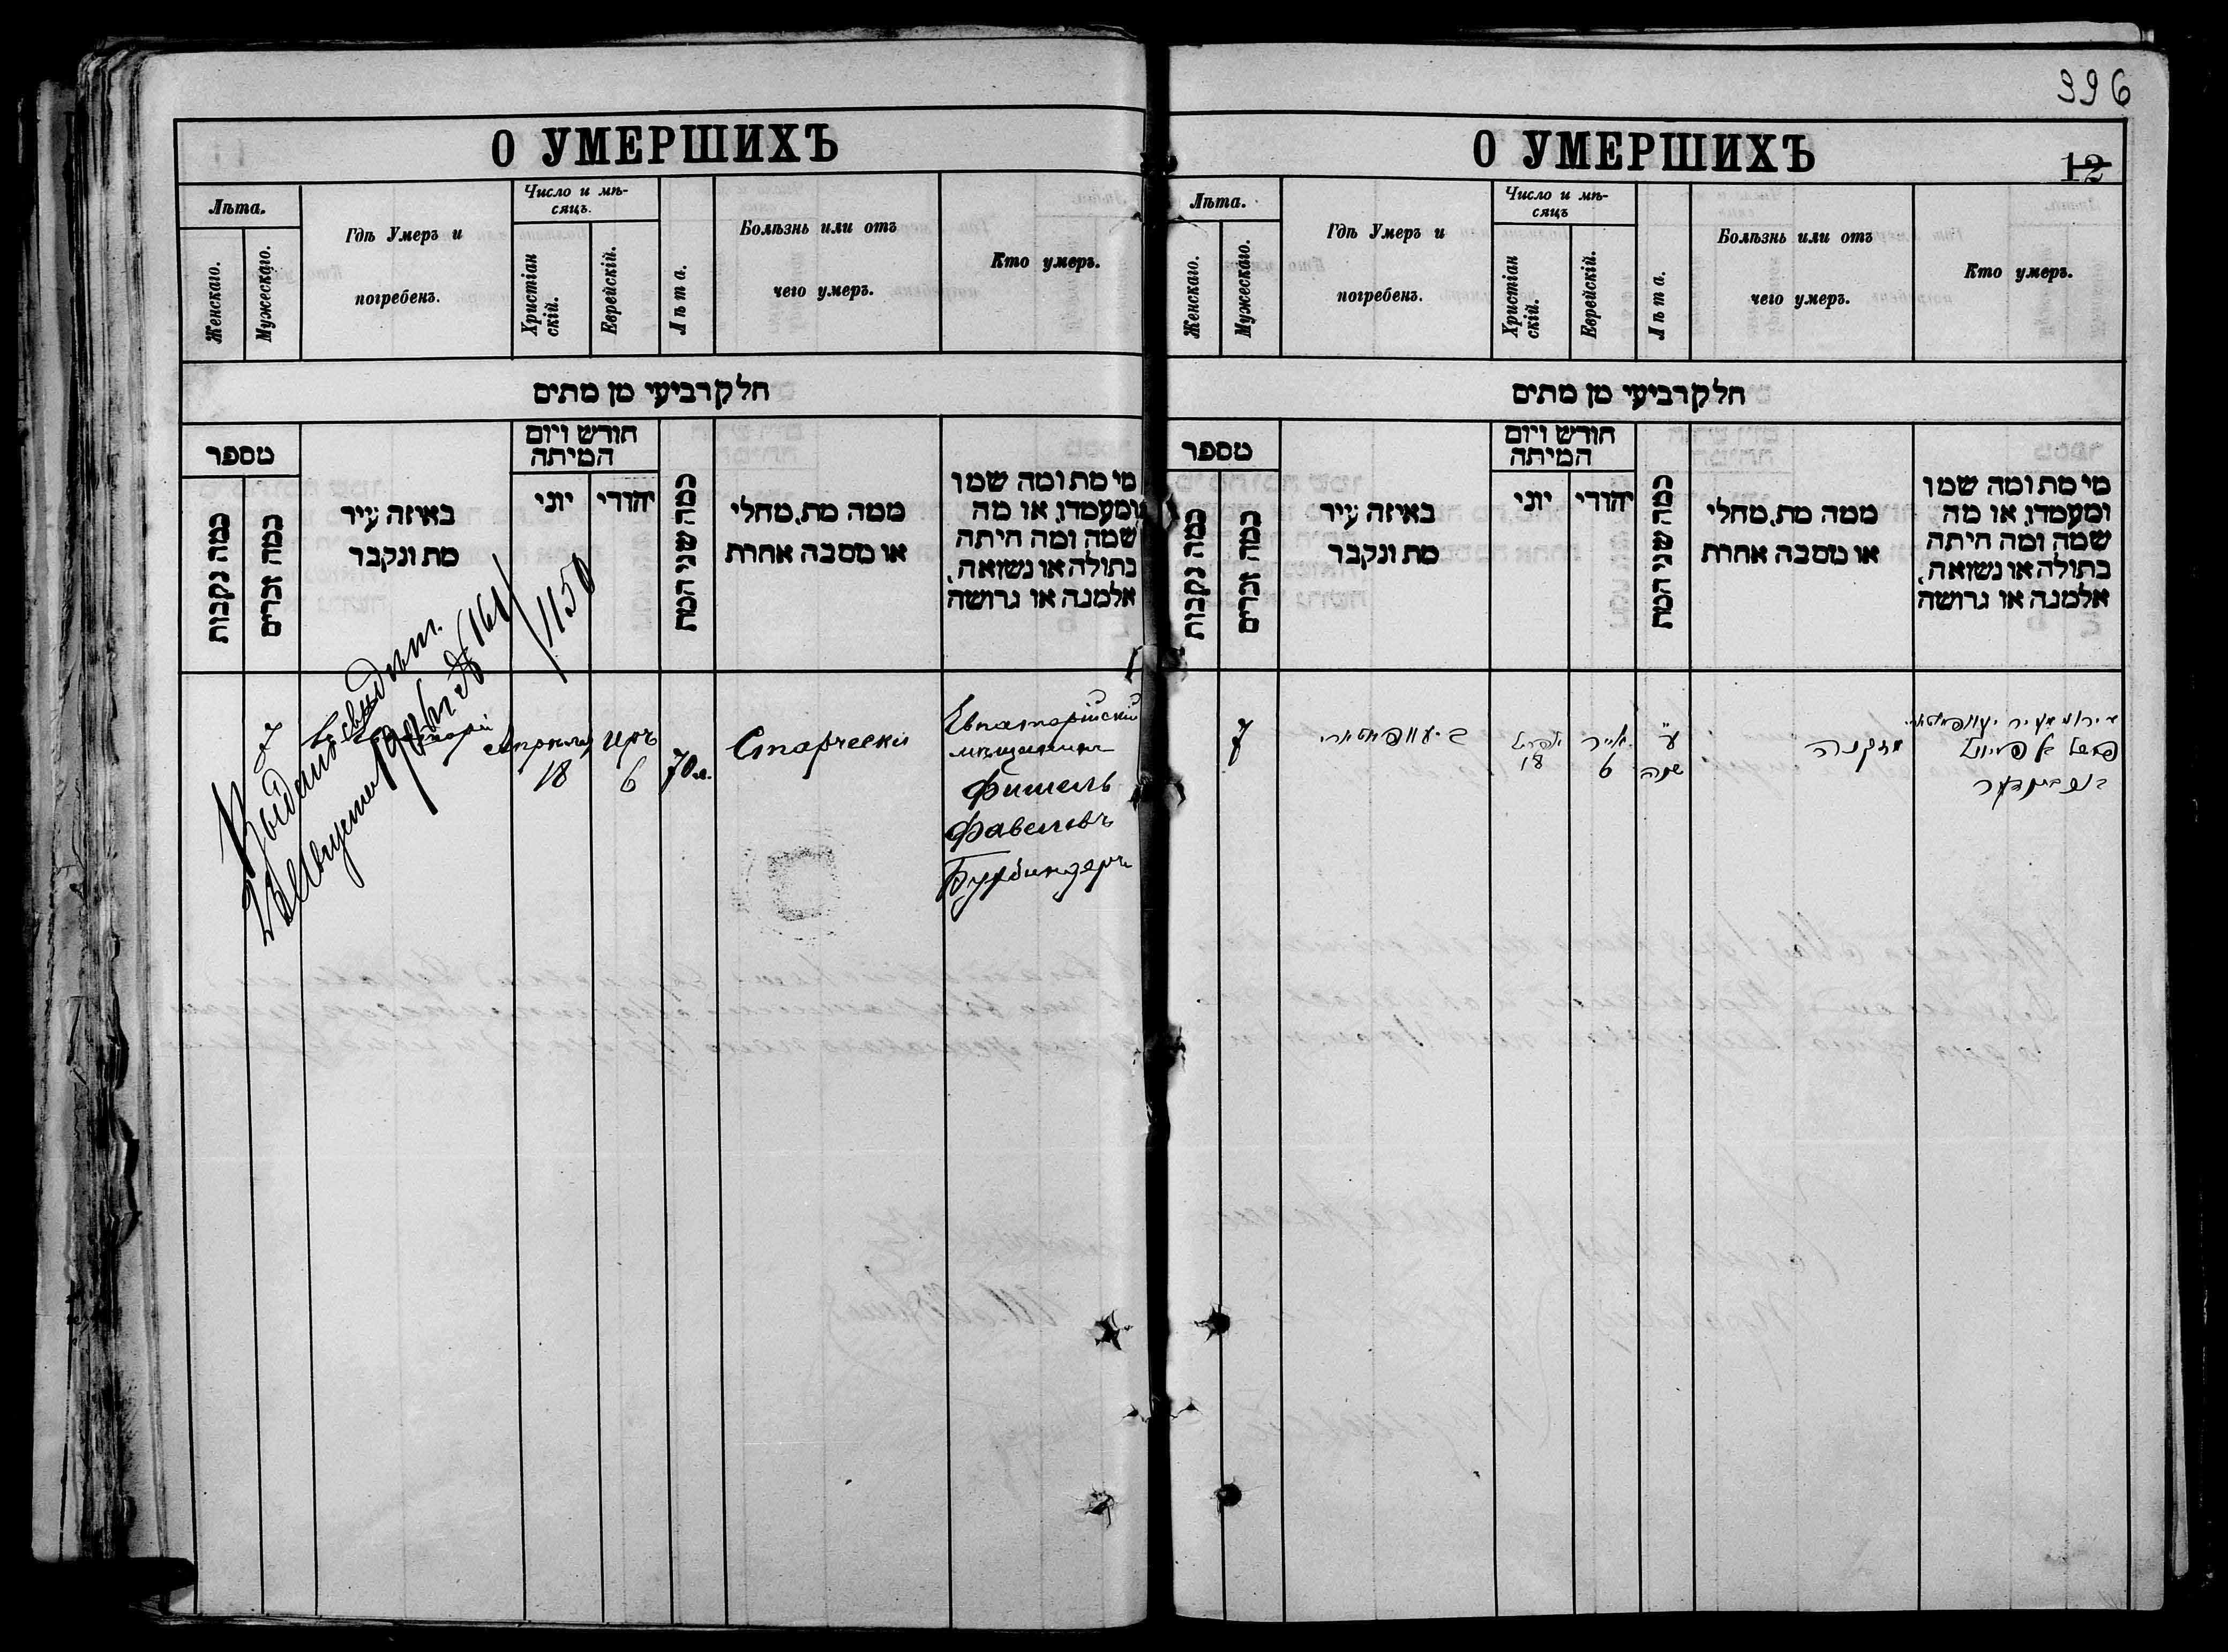 396
О УМЕРШИХЪ
Лѣта.
Женскаго.
Мужескаго.
Гдѣ Умеръ и
погребенъ.
Число и мѣ-
сяцъ.
Христіан
скій.
Еврейскій.
Лѣта.
Болѣзнь или отъ
чего умеръ.
Кто умеръ.
חלק רביעי מן מתים
מספר
כמה נקבות
כמה זכרים
באיזה עיר
מת ונקבר
חודש ויום
המיתה
יוני
יהודי
כמה שני המת
ממה מת, מחלי
או מסבה אחרת
מי מת ומה שמו
ומעמדו, או מה
שמה ומה היתה
בתולה או נשואה,
אלמנה או גרושה
7
Апрѣля
18
Иръ
6
70 л.
Старчески
Евпаторійскій
мѣщанинъ
Фишель
Фавелевъ
Бурбиндеръ
О УМЕРШИХЪ
12
Лѣта.
Женскаго.
Мужескаго.
Гдѣ Умеръ и
погребенъ.
Число и мѣ-
сяцъ
Христіан
скій.
Еврейскій.
Лѣта.
Болѣзнь или отъ
чего умеръ.
Кто умеръ.
חלק רביעי מן מתים
מספר
כמה נקבות
כמה זכרים
באיזה עיר
מת ונקבר
חודש ויום
המיתה
יוני
יהודי
כמה שני המת
ממה מת, מחלי
או מסבה אחרת
מי מת ומה שמו
ומעמדו, או מה
שמה ומה היתה
בתולה או נשואה,
אלמנה או גרושה
7
אפריל
18
אייר
6
ע׳
שנה
מזקנה